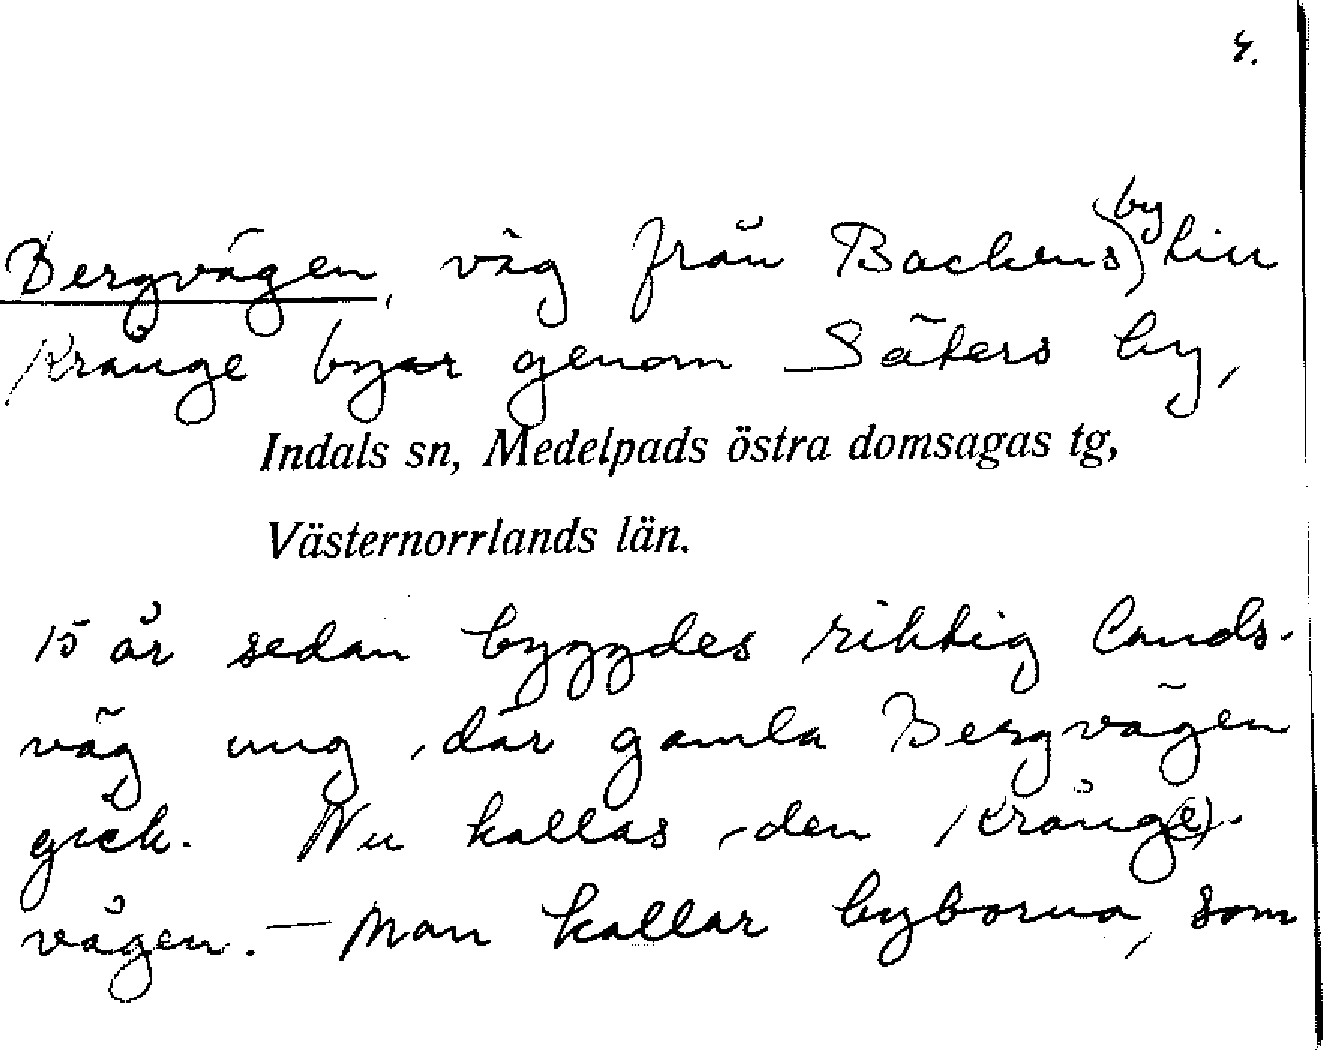 4.
Bergvägen, väg från Backens by till
Krånge byar genom Säters by,
Indals sn, Medelpads östra domsagas tg,
Västernorrlands län.
15 år sedan byggdes riktig lands-
väg ung. där gamla Bergvägen
gick. Nu kallas den Krång(e)-
vägen. — Man kallar byborna, som